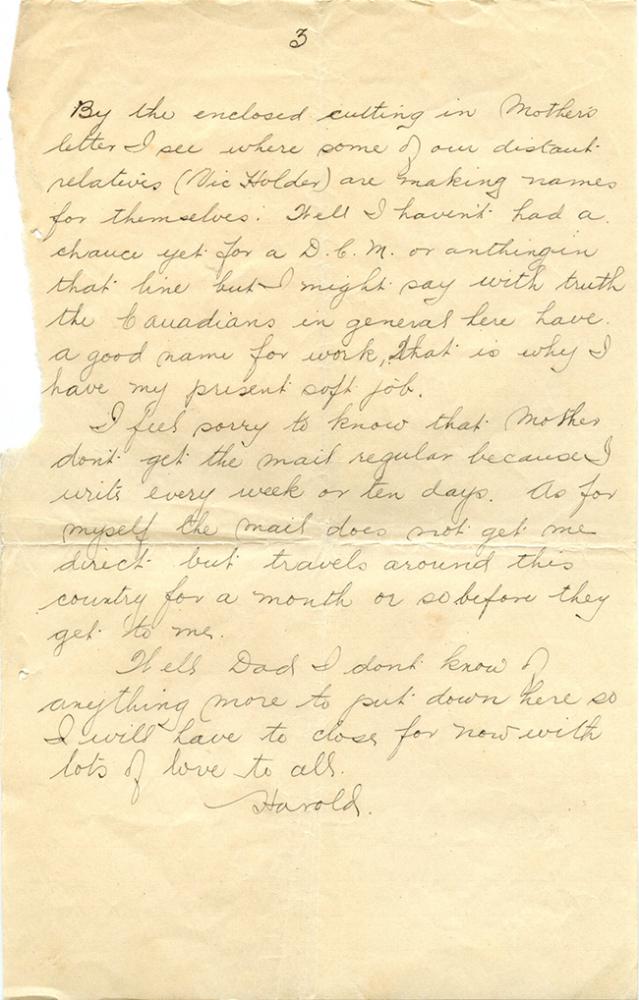 3
By the enclosed cutting in Mother's
letter I see where some of our distant
relatives (Vic Holder) are making names
for themselves. Well I havent had a
chance yet for a D.C.M. or anthing in
that line but I might say with truth
the Canadians in general here have
a good name for work, that is why I
have my present soft job.
I feel sorry to know that Mother
dont get the mail regular because I
write every week or ten days. As for
myself the mail does not get me
direct but travels around this
country for a month or so before they
get to me.
Well Dad I dont know of
anything more to put down here so
I will have to close for now with
lots of love to all.
Harold.